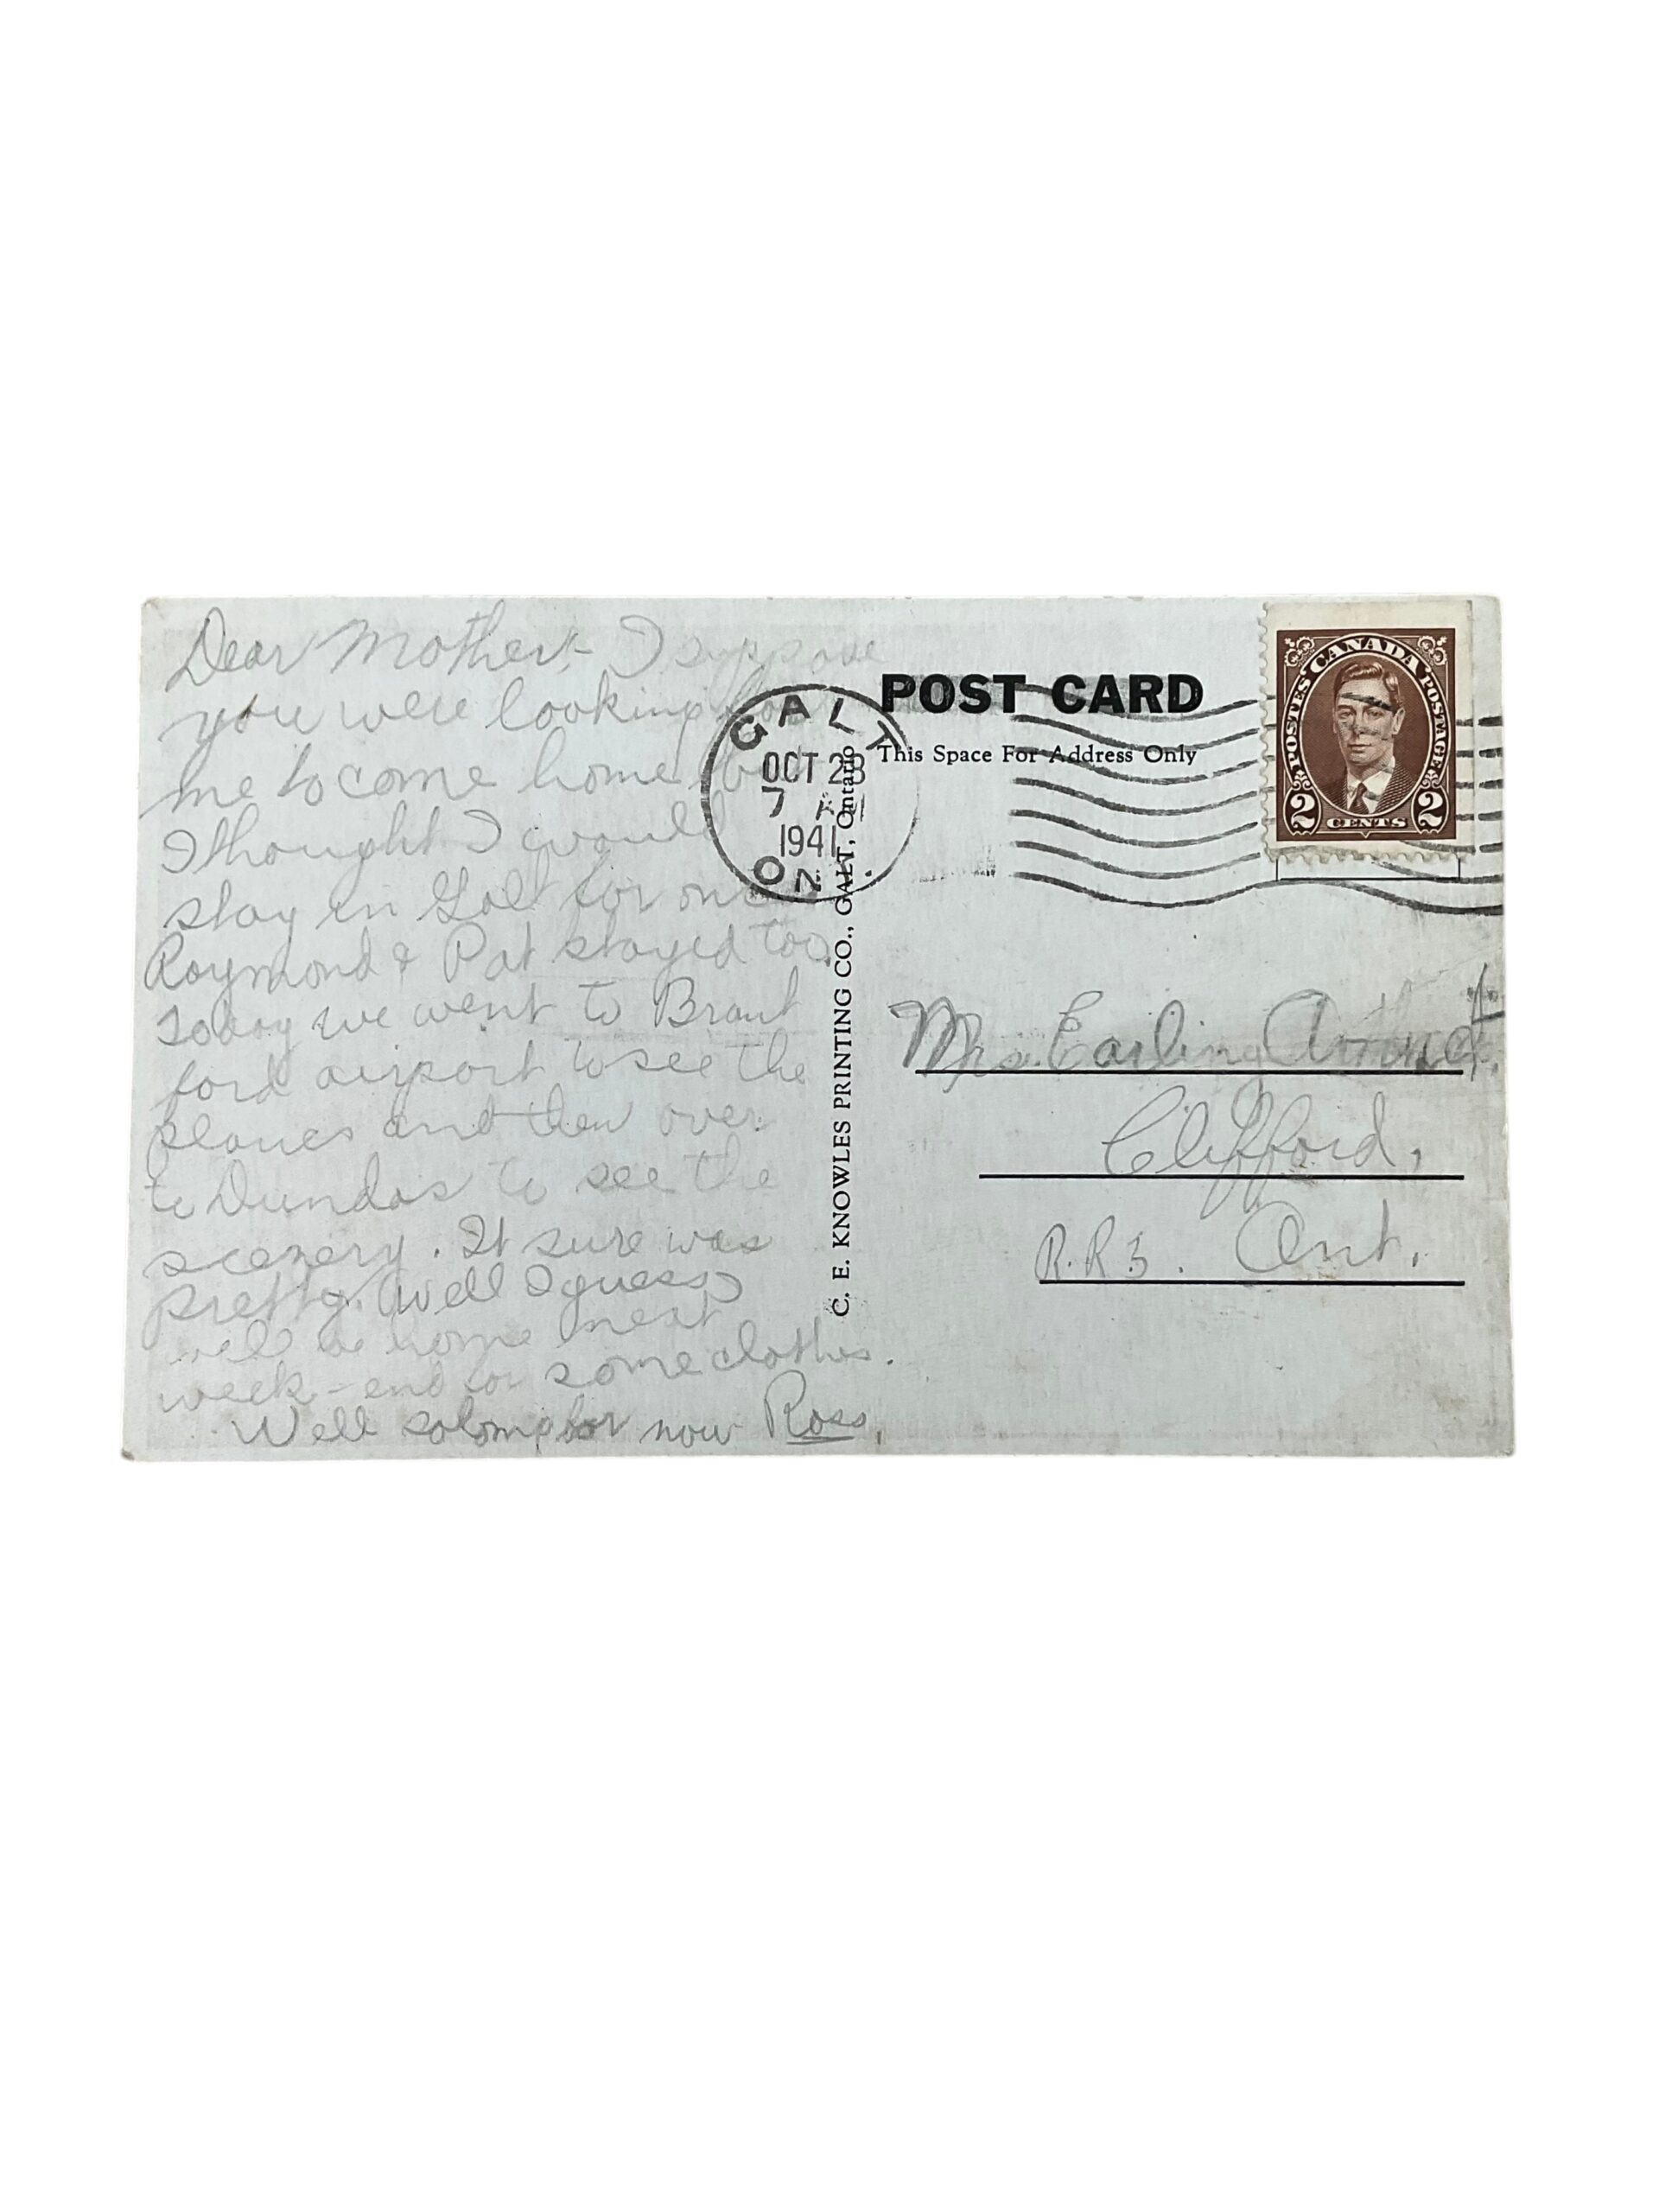 Dear Mother:- I suppose
you were looking for
me to come home but
I thought I would
stay in Galt for once
Raymond & Pat stayed too.
Today we went to Brant
ford airport to see the
planes and then over
to Dundas to see the
scenery. It sure was
pretty. Well I guess
will be home next
week-end for some clothes.
Well so long for now Ross.
GALT
OCT 28
7 A
1941
ON
C. E. KNOWLES PRINTING CO., GALT, Ontario
POST CARD
This Space For Address Only
CANADA
POSTES POSTAGE
2 CENTS 2
Mrs. Earling
Clifford,
R.R 3. Ont.